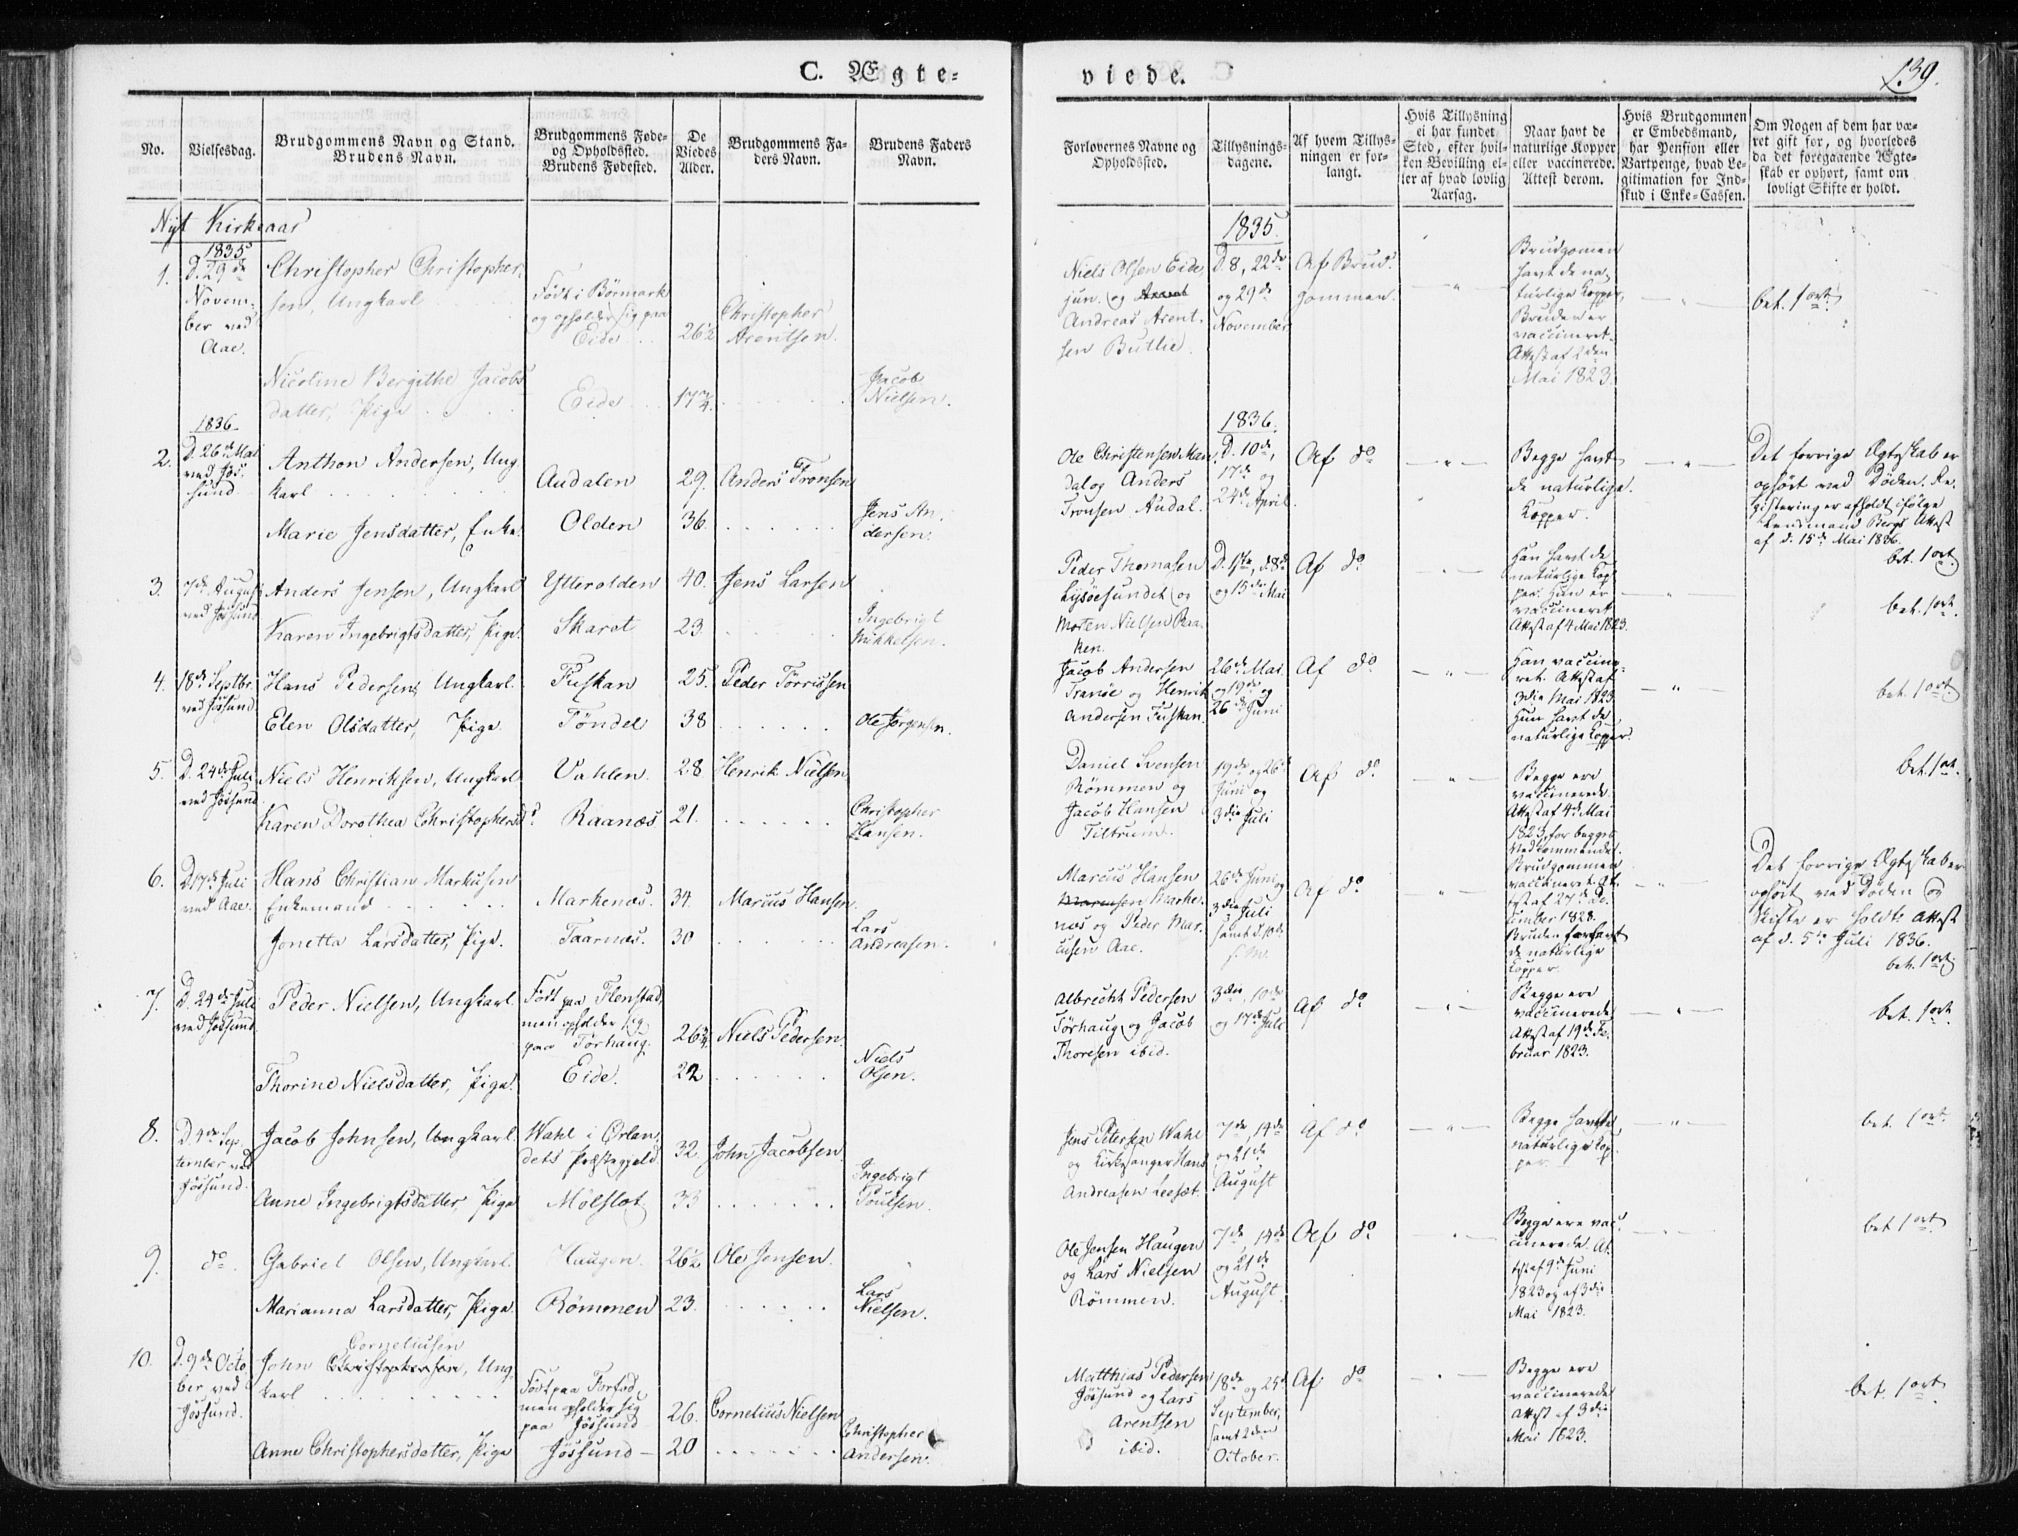 C. Ægte-
viede.
139.
No.
Vielsesdag.
Brudgommens Navn og Stand.
Brudens Navn.
Brudgommens Føde-
og Opholdssted.
Brudens Fødested.
De
Viedes
Alder.
Brudgommens Fa-
ders Navn.
Brudens Faders
Navn.
Forlovernes Navne og
Opholdssted.
Tillysnings-
dagene.
Af hvem Tillys-
ningen er for-
langt.
Hvis Tillysning
ei har fundet
Sted, efter hvil-
ken Bevilling el-
ler af hvad lovlig
Aarsag.
Naar havt de
naturlige Kopper
eller vaccinerede.
Attest derom.
Hvis Brudgommen
er Embedsmand,
har Pension eller
Vartpenge, hvad Le-
gitimation for Ind-
skud i Enke-Cassen.
Om Nogen af dem har væ-
ret gift før, og hvorledes
da det foregaaende Ægte-
skab er ophørt, samt om
lovligt Skifte er holdt.
Nyt Kirkeaar
1835
1.
D. 29de
Novem-
ber ved
Aae.
Christopher Christopher-
sen, Ungkarl
Født i Börmark
og opholder sig paa
Eide
26½
Christopher
Arentsen.
Nicoline Bergithe Jacobs
datter, Pige
Eide
17¾
Jacob
Nielsen.
1835.
Niels Olsen Eide
jun. og
Andreas Arent-
sen Butlie.
D. 8, 22de
og 29de
November
Af Brud-
gommen.
Brudgomen
havt de na-
turlige Kopper,
Bruden er
vaccineret.
Attest af 2den
Mai 1823.
bet. 1 ort.
1836.
2.
D. 26de Mai
ved Jös-
sund
Anthon Andersen, Ung
karl
Audalen
29.
Anders Tronsen
Marie Jensdatter, Enke.
Olden
36.
Jens An-
dersen.
1836.
Ole Christensen
dal og Anders
Tronsen Audal.
D. 10de,
17de og
24de April.
Af do
Begge havt
de naturlige
Kopper.
Det forrige Ægteskab er
ophört ved Döden. Re-
gistering er afholdt ifölge
Lensmand Bergs Attest
af d. 15de Mai 1836.
bet. 1 ort.
3.
7de August
ved Jössund
Anders Jensen, Ungkarl
Ytterolden
40.
Jens Larsen
Karen Ingebrigtsdatter, Pige.
Skaret
23.
Ingebrigt
Mikkelsen.
Peder Thomasen
Lysöesundet og
Morten Nielsen Raa-
ken.
D. 1ste, d. 8de
og 15de Mai
Af do
Han havt de
naturlige Kop-
per. Hun er
vaccineret
Attest af 4 Mai 1823.
bet. 1 ort.
4.
18de Septbr.
ved Jössund
Hans Pedersen, Ungkarl.
Fuskan
25.
Peder Törrissen
Elen Olsdatter, Pige
Töndel
38
Ole Jörgensen.
Jacob Andersen
Tranöe og Henrik
Andersen Fuskan.
26de Mai
og 19de og
26de Juni
Af do
Han vaccine-
ret. Attest af
3die Mai 1823.
Hun havt de
naturlige Kopper.
bet. 1 ort
5.
D. 24de Juli
ved Jössund
Niels Henriksen, Ungkarl
Vahlen.
28
Henrik Nielsen
Karen Dorothea Christophersd.
Raanæs
21.
Christopher
Hansen.
Daniel Svensen
Römmen og
Jacob Hansen
Tiltrum.
19de og 26de
Juni og
3die Juli
Af do
Begge ere
vaccinerede.
Attest af 4de Mai
1823 for begges
Vedkommende.
bet. 1 ort.
6.
D. 17de Juli
ved Aae.
Hans Christian Markusen
Enkemand
Markenæs.
34.
Marcus Hansen.
Jonetta Larsdatter, Pige.
Taarnæs.
30
Lars
Andreasen.
Marcus Hansen
Marke-
næs og Peder Mar-
cusen Aae.
26de Juni og
3die Juli
samt d. 10de
s. M.
Af do
Brudgommen
vaccineret At-
test af 27de De-
cember 1828.
Bruden havt
de naturlige
Kopper.
Det forrige Ægteskab er
ophört ved Döden og
Skifte er holdt Attest
af d. 5te Juli 1836.
bet. 1 ort.
7.
D. 24de Juli
ved Jössund.
Peder Nielsen, Ungkarl
Födt paa Flenstad,
men opholder sig
paa Törhaug.
26¾
Niels Pedersen.
Thorine Nielsdatter, Pige.
Eide.
22
Niels
Olsen.
Albrecht Pedersen
Törhaug og Jacob
Thoresen ibid.
3die, 10de
og 17de Juli
Af do
Begge ere
vaccinerede
Attest af 19de Fe-
bruar 1823.
bet. 1 ort.
8.
D. 4de Sep-
tember ved
Jössund.
Jacob Johnsen, Ungkarl.
Wahl i Örlan-
dets Præstegjeld
32.
John Jacobsen.
Anne Ingebrigtsdatter, Pige
Mölslet
33
Ingebrigt
Poulsen.
Jens Petersen Wahl
og Kirkesanger Hans
Andreasen Leesæt.
7de, 14de
og 21de
August
Af do
Begge havt
naturlige Kop-
per.
bet. 1 ort.
9.
do.
Gabriel Olsen, Ungkarl.
Haugen.
26½
Ole Jensen.
Marianna Larsdatter, Pige.
Römmen
23.
Lars
Nielsen.
Ole Jensen Haugen
og Lars Nielsen
Römmen.
7de, 14de
og 21de
August.
Af do
Begge ere vac-
cinerede. At-
test af 9de Juni
1823 og af 3die
Mai 1823.
bet. 1 ort.
10.
D. 9de Octo
ber ved
Jössund.
Corneliusen
John Christophersen, Ung-
karl
Födt paa Forfod,
men opholder sig
paa Jössund
26.
Cornelius Nielsen
Anne Christophersdatter, Pige
Jössund
20
Christopher
Andersen.
Matthias Pedersen
Jössund og Lars
Arentsen
ibid.
18de og 25de
September,
samt 2den
October.
Af do
Begge ere
vaccinerede
Attest af 3die
Mai 1823.
bet. 1 ort